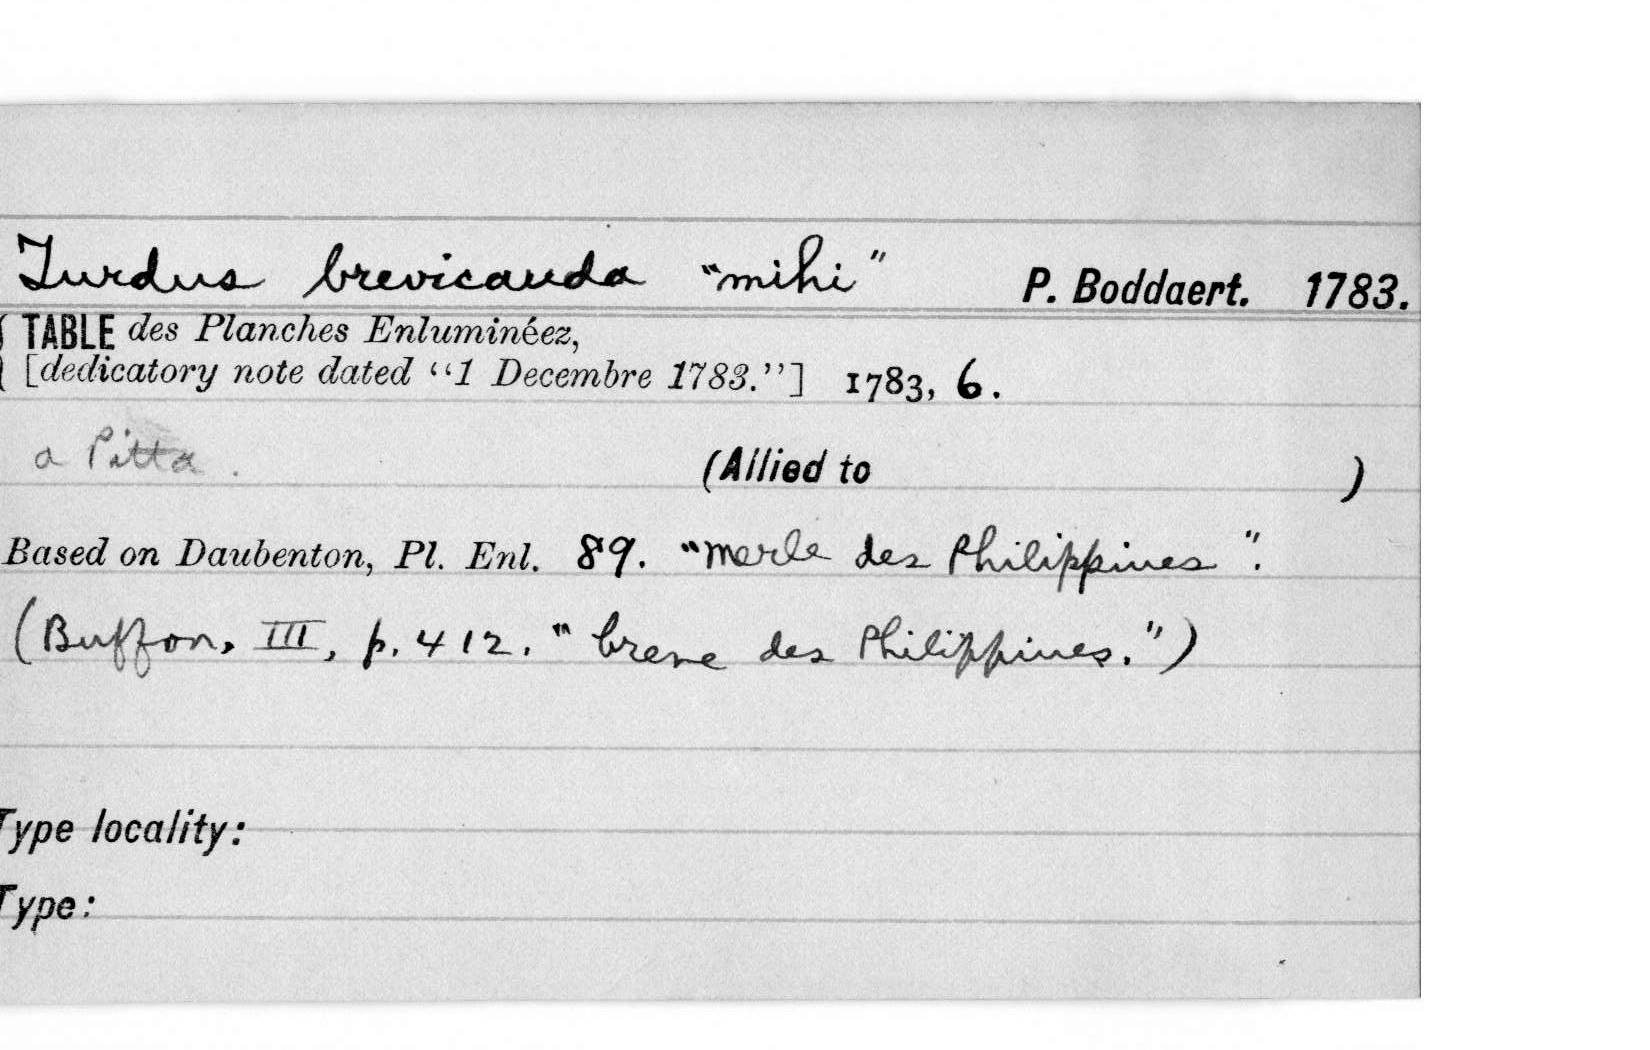 Turdus brevicauda "mihi" P. Boddaert. 1783.
TABLE des Planches Enluminéez,
[dedicatory note dated "1 Decembre 1783."] 1783, 6.
a Pitta. (Allied to )
Based on Daubenton, Pl. Enl. 89. "merle des Philippines".
(Buffon, III, p. 412. "breve des Philippines.")
Type locality:
Type: